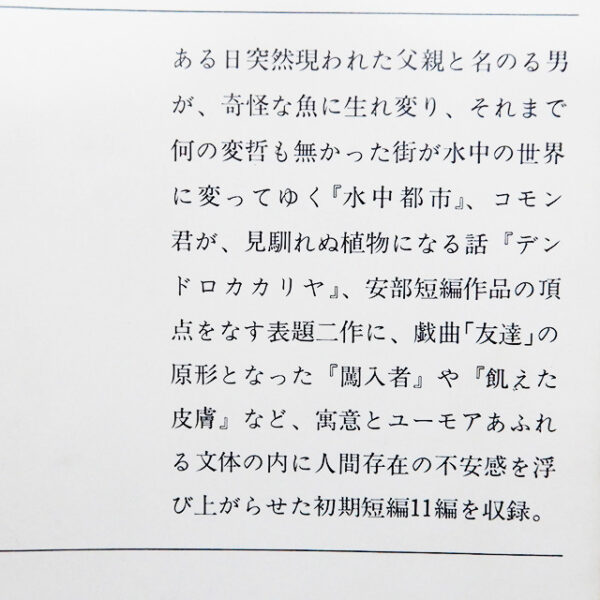 ある日突然現われた父親と名のる男
が、奇怪な魚に生れ変り、それまで
何の変哲も無かった街が水中の世界
に変ってゆく『水中都市』、コモン
君が、見馴れぬ植物になる話『デン
ドロカカリヤ』、安部短編作品の頂
点をなす表題二作に、戯曲「友達」の
原形となった『闖入者』や『飢えた
皮膚』など、寓意とユーモアあふれ
る文体の内に人間存在の不安感を浮
び上がらせた初期短編11編を収録。